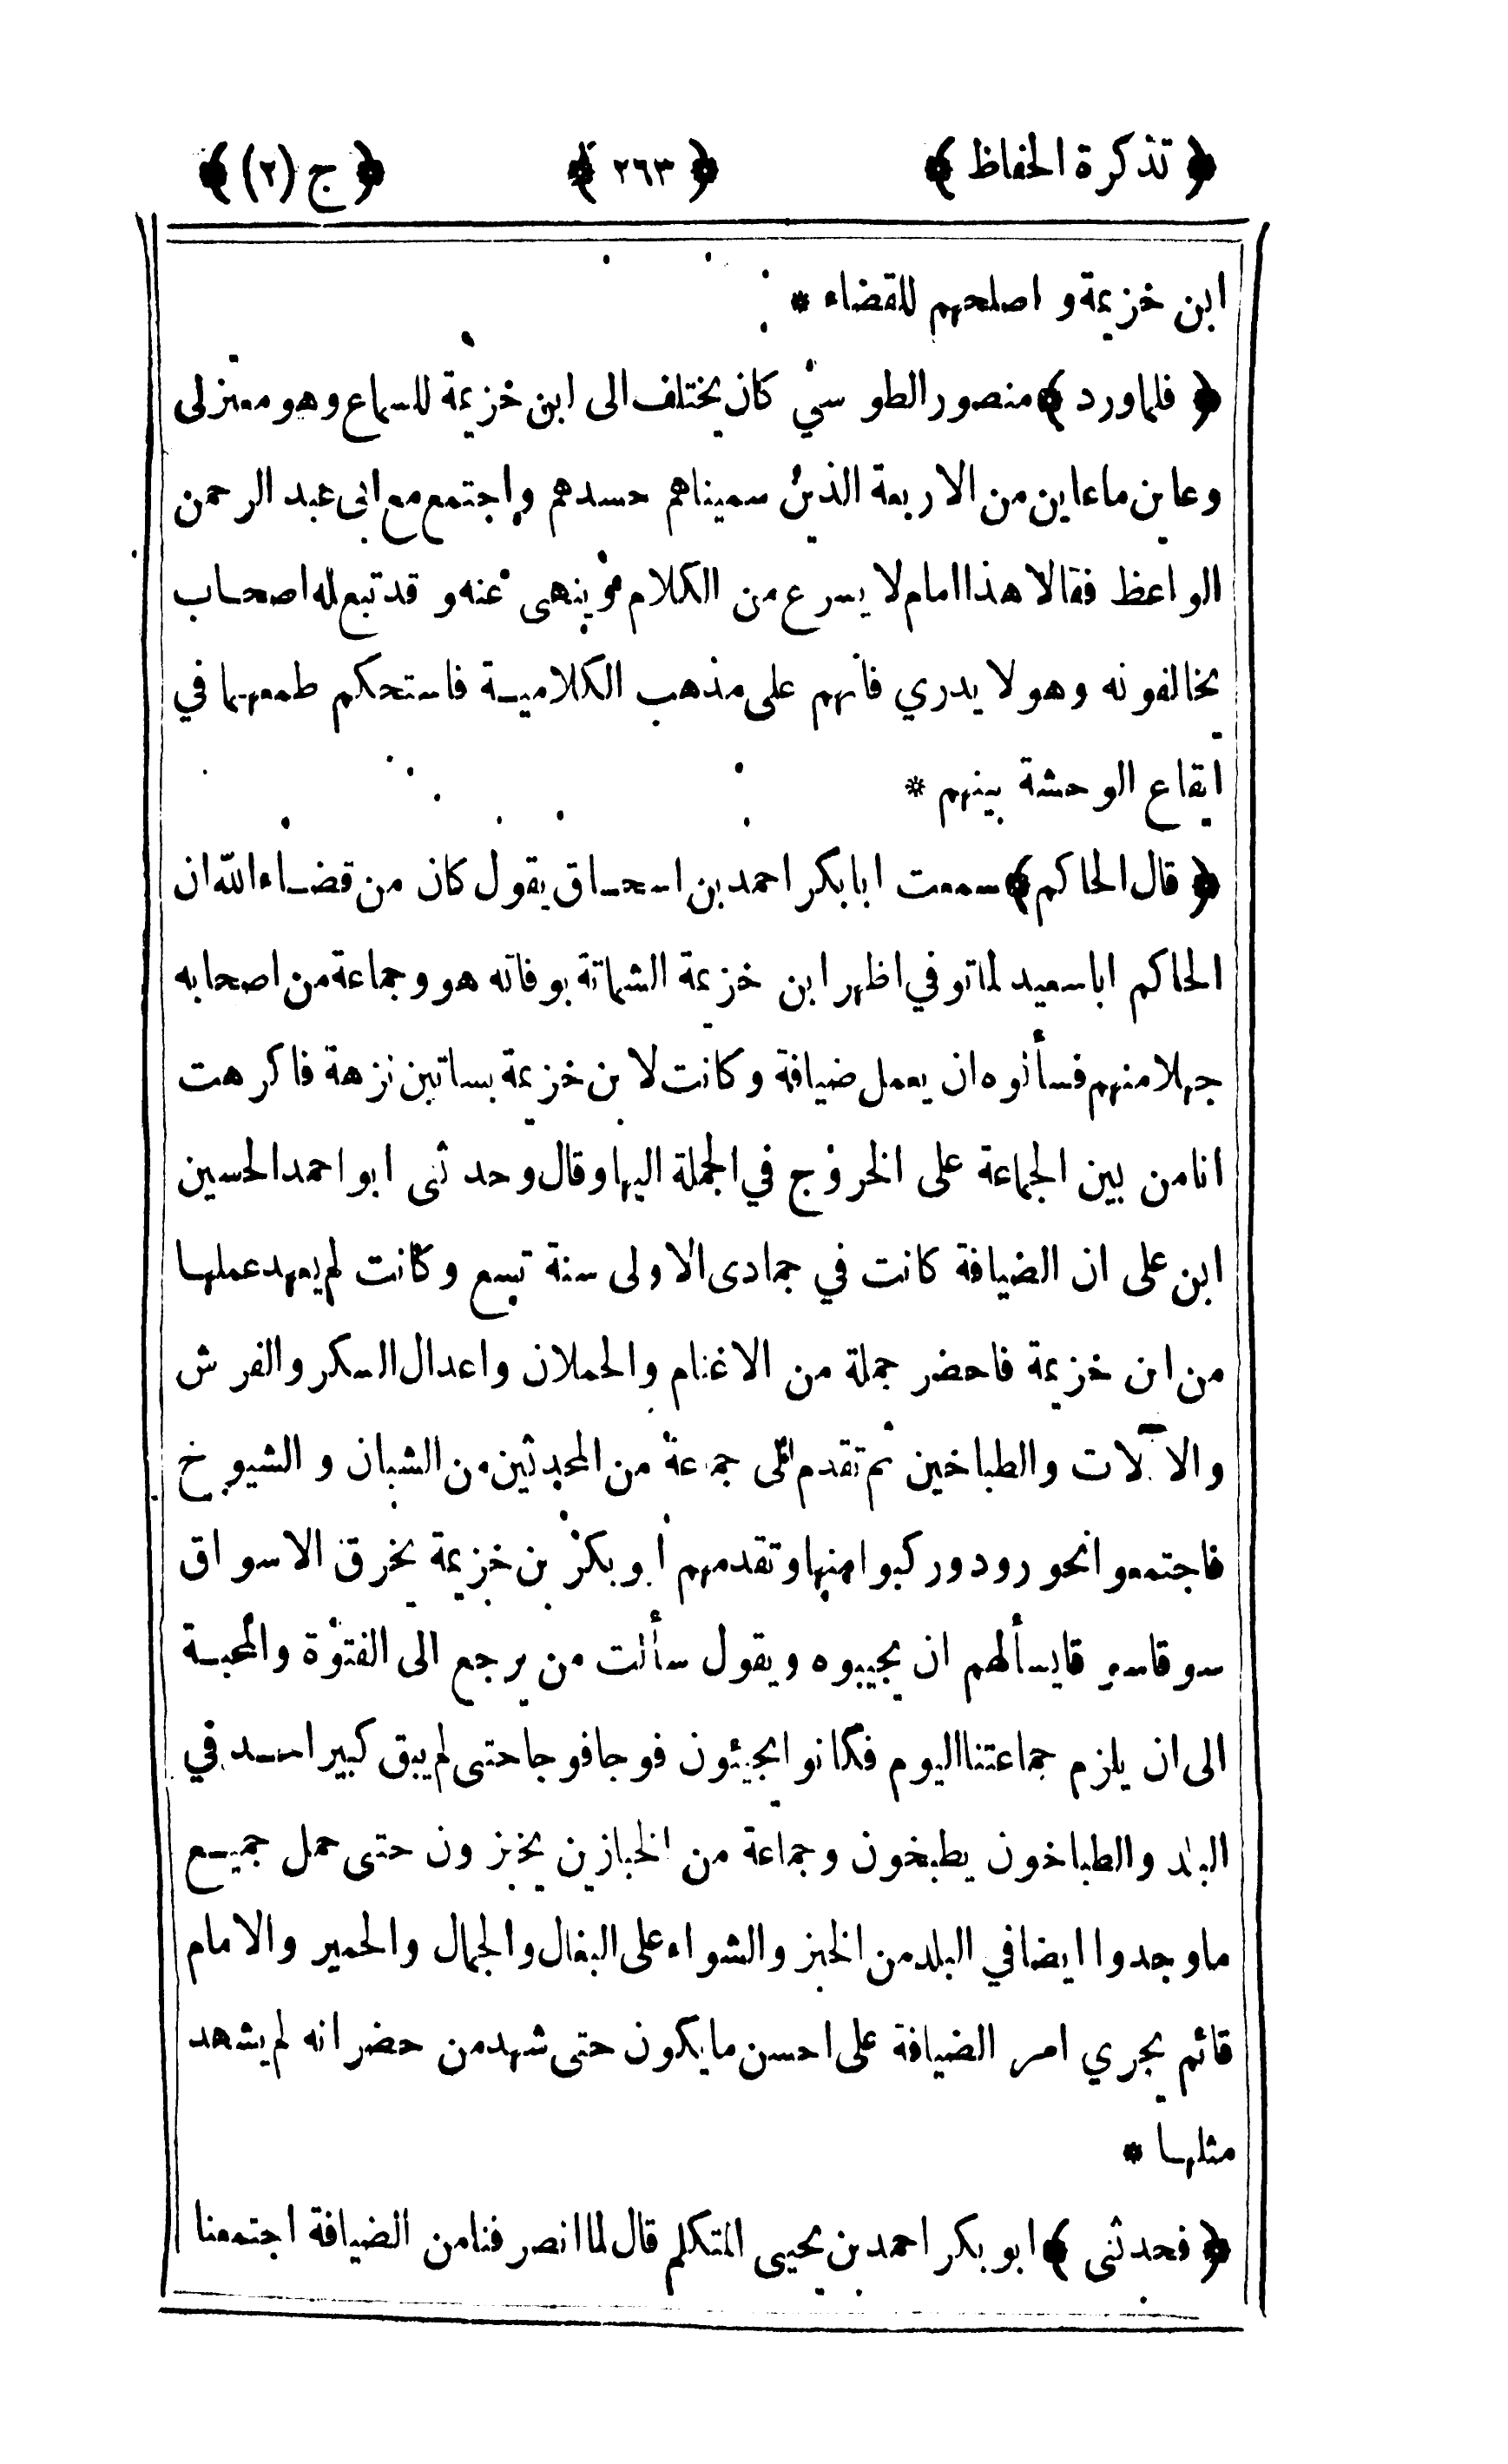 ﴿ تذكرة الحفاظ ﴾ ﴿ ٢٦٣ ﴾ ﴿ ج (٢) ﴾
ابن خزيمة و اصلحهم للقضاء *
﴿ فلما ورد ﴾ منصور الطوسي كان يختلف الى ابن خزيمة للسماع وهو معتزلى
وعاين ما عاين من الاربعة الذين سميناهم حسدهم واجتمع مع ابى عبد الرحمن
الواعظ فقالا هذا امام لا يسرع من الكلام وينهى عنه و قد تبع له اصحاب
يخالفونه وهو لا يدري فانهم على مذهب الكلامية فاستحكم طمعهما في
ايقاع الوحشة بينهم *
﴿ قال الحاكم ﴾ سمعت ابا بكر احمد بن اسحاق يقول كان من قضاء الله ان
الحاكم ابا سعيد لما توفي اظهر ابن خزيمة الشماتة بوفاته هو وجماعة من اصحابه
جهلا منهم فسألوه ان يعمل ضيافة وكانت لابن خزيمة بساتين نزهة فاكرهت
انا من بين الجماعة على الخروج في الجملة اليها وقال وحدثنى ابو احمد الحسين
ابن على ان الضيافة كانت في جمادى الاولى سنة تسع وكانت لم يعهد عملها
من ابن خزيمة فاحضر جملة من الاغنام والحملان واعدال السكر والفرش
والآلات والطباخين ثم تقدم الى جماعة من المحدثين من الشبان و الشيوخ
فاجتمعوا نحو رود وركبوا منها وتقدمهم ابو بكر بن خزيمة يخرق الاسواق
سوقا سوقا يسألهم ان يجيبوه ويقول سألت من يرجع الى الفتوة والمحبة
الى ان يلزم جماعتنا اليوم فكانوا يجيئون فوجا فوجا حتى لم يبق كبير احد في
البلد والطباخون يطبخون وجماعة من الخبازين يخبزون حتى حمل جميع
ما وجدوا ايضا في البلد من الخبز والشواء على البغال والجمال والحمير والامام
قائم يجري امر الضيافة على احسن ما يكون حتى شهد من حضر انه لم يشهد
مثلها *
﴿ فحدثنى ﴾ ابو بكر احمد بن يحيى المتكلم قال لما انصرفنا من الضيافة اجتمعنا